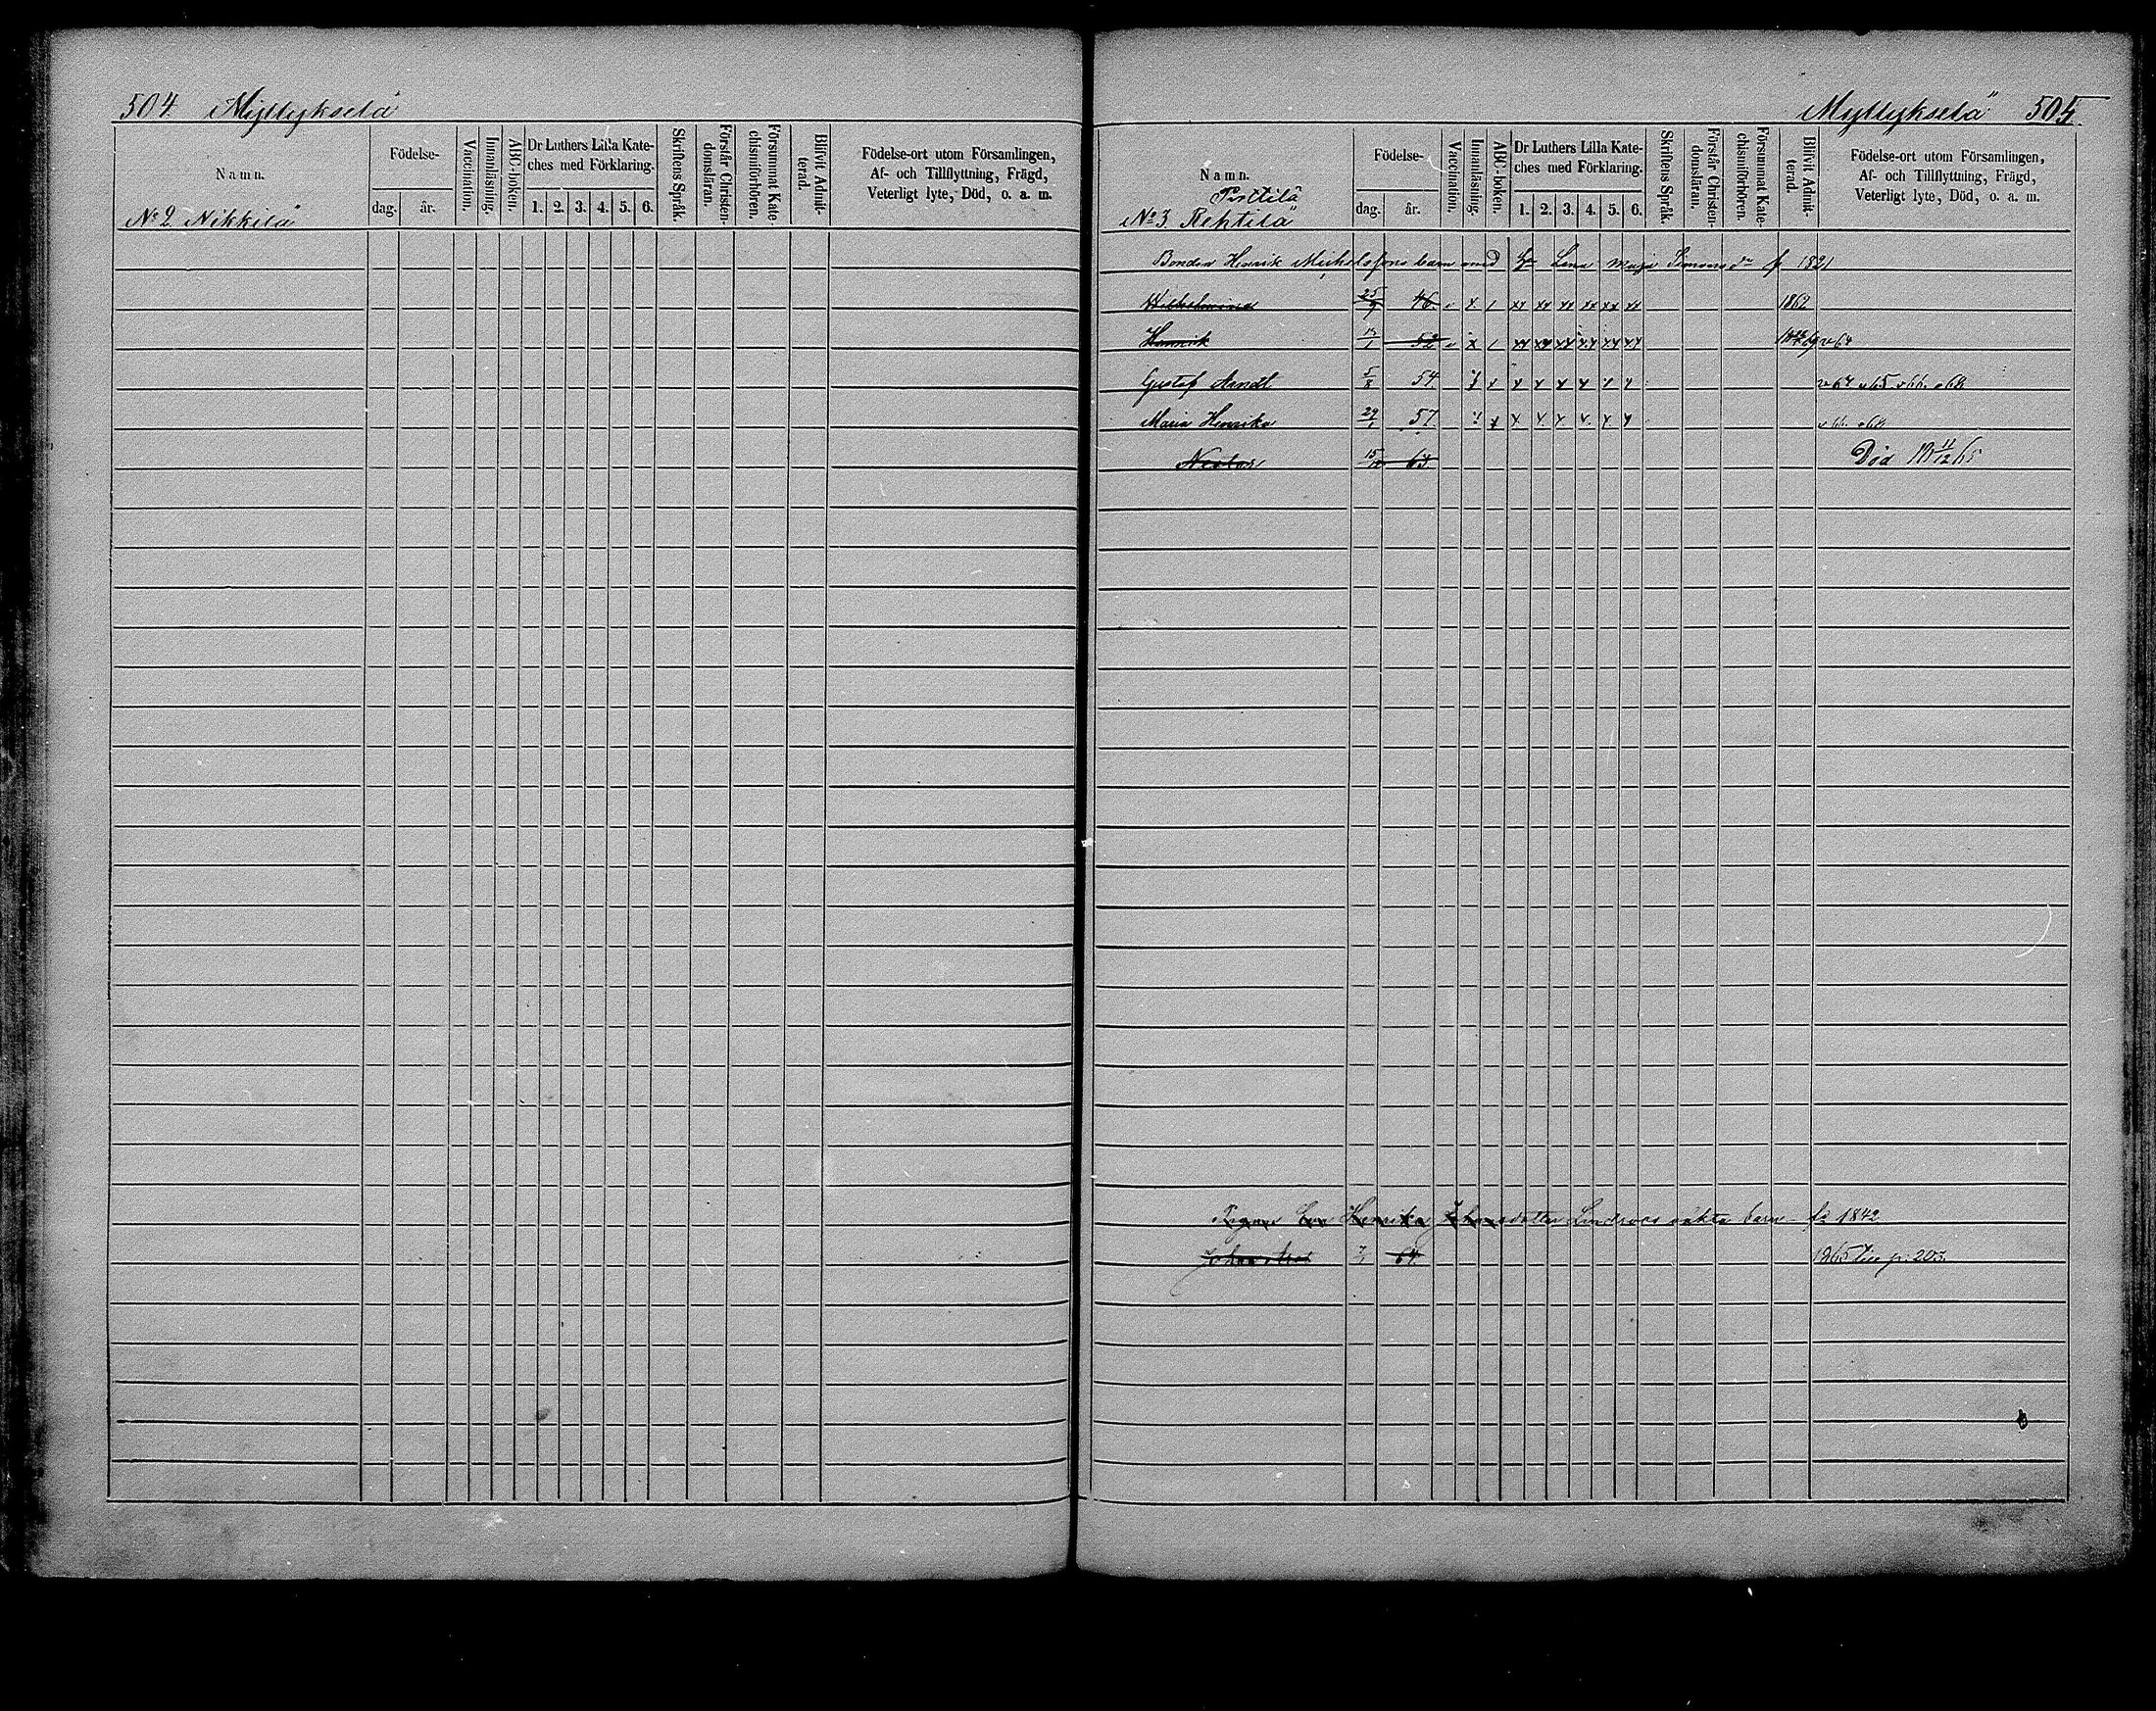 504. Myllykselä
Namn.
Födelse-
dag.
år.
Vaccination.
Innanläsning.
ABC-boken.
Dr Luthers Lilla Kate-
ches med Förklaring.
1. 2. 3. 4. 5. 6.
Skriftens Språk.
Förstår Christen-
domsläran.
Försummat Kate-
chismiförhören.
Blifvit Admit-
terad.
Födelse-ort utom Församlingen,
Af- och Tillflyttning, Frägd,
Veterligt lyte, Död, o. a. m.
No 2 Nikkilä
Myllykselä 505.
Namn.
Födelse-
dag.
år.
Vaccination.
Innanläsning.
ABC-boken.
Dr Luthers Lilla Kate-
ches med Förklaring.
1. 2. 3. 4. 5. 6.
Skriftens Språk.
Förstår Christen-
domsläran.
Försummat Kate-
chismiförhören.
Blifvit Admit-
terad.
Födelse-ort utom Församlingen,
Af- och Tillflyttning, Frägd,
Veterligt lyte, Död, o. a. m.
Perttilä
No 3.
Bonden Henrik Michelssons barn med Lena Maja Simonsdr f 1821
Wilhelmina 25/9 46. v x / xx xx xx xx xx xx 1862
Henrik 52 v x / xx xx xx xx xx xx
Gustaf 5/8 54 x x x x x x x
Maria Henrika 29/1 57 x x x x x x x
Nestor 15 63. Död 11/12 65
Henrika Lindroos oäkta barn fö 1842
Johan 64. 1865 p. 203.